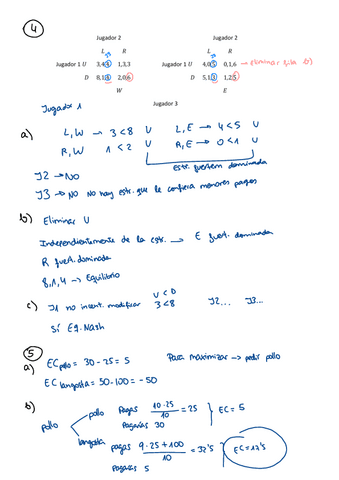 4
Jugador 2 Jugador 2
L R L R
Jugador 1 U 3,4,4 1,3,3 Jugador 1 U 4,0,5 0,1,6 → eliminar fila b)
D 8,1,4 2,0,6 D 5,1,3 1,2,5
W E
Jugador 1 Jugador 3
a) L, W → 3<8 U L, E → 4<5 U
R, W 1<2 U R, E → 0<1 U
Estr. fuertem dominada
J2 → NO
J3 → NO No hay estr. que le confiera menores pagos
b) Eliminar U
Independientemente de la estr. → E fuert. dominada
R fuert. dominada
8,1,4 → Equilibrio
U<D
c) J1 no incent. modificar 3<8 J2... J3...
Sí Eq. Nash
5
a) EC pollo = 30 - 25 = 5 Para maximizar → pedir pollo
EC langosta = 50 - 100 = - 50
b)
pollo pollo Pagas 10·25/10 = 25 EC = 5
Pagarías 30
langosta pagas 9·25+100/10 = 32'5 EC = 12'5
Pagarías 5